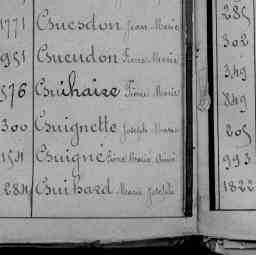 1771 Guesdon Jean Marie 285
951 Gueudon Pierre Marie 302
576 Guihaire Pierre Marie 349
300 Guignette Joseph Marie 849
1511 Guigné Pierre Marie Aimé 205
284 Guihard Marie Joseph 993
1822